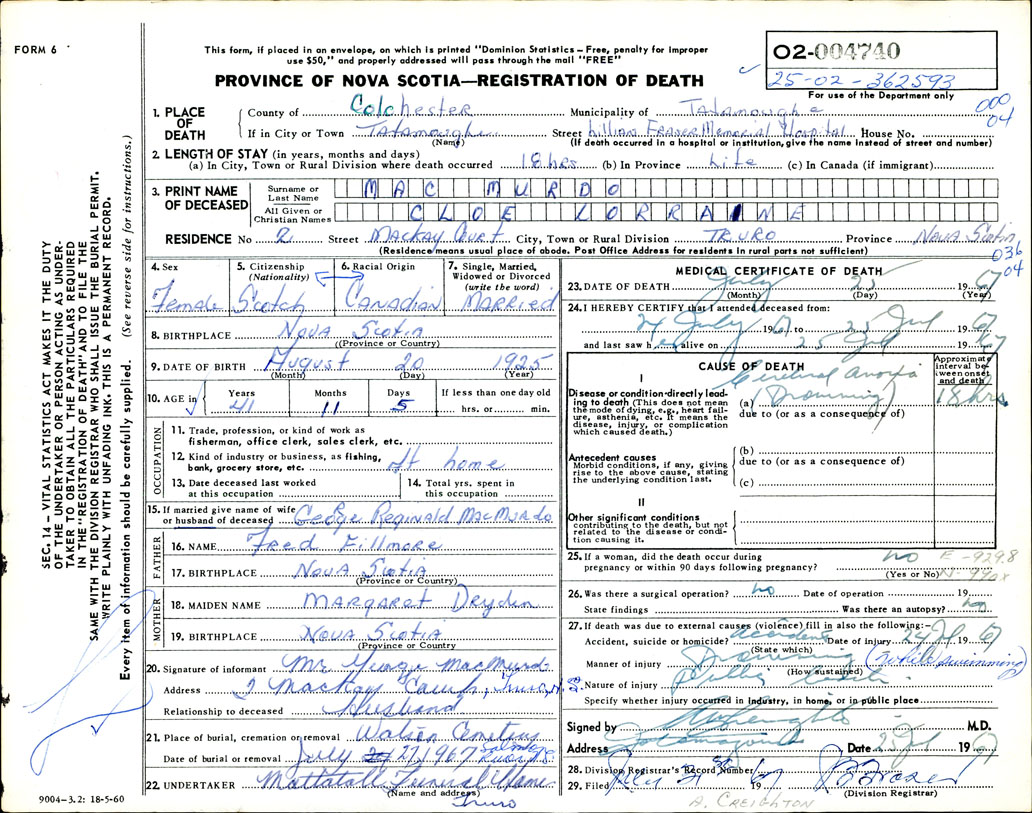 FORM 6
This form, if placed in an envelope, on which is printed "Dominion Statistics – Free, penalty for improper
use $50," and properly addressed will pass through the mail "FREE"
PROVINCE OF NOVA SCOTIA—REGISTRATION OF DEATH
02-004740
25-02-362593
For use of the Department only
000
04
SEC. 14 – VITAL STATISTICS ACT MAKES IT THE DUTY
OF THE UNDERTAKER OR PERSON ACTING AS UNDER-
TAKER TO OBTAIN ALL THE PARTICULARS REQUIRED
IN THE "REGISTRATION OF DEATH" AND TO FILE THE
SAME WITH THE DIVISION REGISTRAR WHO SHALL ISSUE THE BURIAL PERMIT.
WRITE PLAINLY WITH UNFADING INK. THIS IS A PERMANENT RECORD.
Every item of information should be carefully supplied. (See reverse side for instructions.)
1. PLACE OF DEATH
County of Colchester Municipality of Tatamougche
If in City or Town Street Lillian Fraser Memorial Hospital House No.
(Name) (If death occurred in a hospital or institution, give the name instead of street and number)
2. LENGTH OF STAY (in years, months and days)
(a) In City, Town or Rural Division where death occurred 18 hrs (b) In Province Life (c) In Canada (if immigrant)
3. PRINT NAME OF DECEASED
Surname or Last Name MAC MURDO
All Given or Christian Names CLOE LORRAINE
RESIDENCE No 2 Street MacKay Court City, Town or Rural Division TRURO Province Nova Scotia
(Residence means usual place of abode. Post Office Address for residents in rural parts not sufficient)
036
04
4. Sex 5. Citizenship (Nationality) 6. Racial Origin 7. Single, Married, Widowed or Divorced (write the word)
Female Scotch Canadian Married
8. BIRTHPLACE Nova Scotia
(Province or Country)
9. DATE OF BIRTH August 20 1925
(Month) (Day) (Year)
10. AGE in Years Months Days If less than one day old
41 11 5 hrs. or min.
OCCUPATION
11. Trade, profession, or kind of work as
fisherman, office clerk, sales clerk, etc.
12. Kind of industry or business, as fishing,
bank, grocery store, etc. At home
13. Date deceased last worked
at this occupation
14. Total yrs. spent in
this occupation
15. If married give name of wife
or husband of deceased George Reginald MacMurdo
FATHER
16. NAME Fred Fillmore
17. BIRTHPLACE Nova Scotia
(Province or Country)
MOTHER
18. MAIDEN NAME Margaret Dryden
19. BIRTHPLACE Nova Scotia
(Province or Country)
20. Signature of informant Mr. George MacMurdo
Address 2 MacKay Court, Truro, N.S.
Relationship to deceased Husband
21. Place of burial, cremation or removal Cemetery
Date of burial or removal July 27, 1967
22. UNDERTAKER Mattatall Funeral Home
(Name and address)
Truro
9004-3.2: 18-5-60
MEDICAL CERTIFICATE OF DEATH
23. DATE OF DEATH July 25 1967
(Month) (Day) (Year)
24. I HEREBY CERTIFY that I attended deceased from:
24 July 1967 to 25 Jul 1967
and last saw her alive on 25 Jul 1967
CAUSE OF DEATH
Approximate interval between onset and death
I
Disease or condition directly lead-
ing to death (This does not mean
the mode of dying, e.g., heart fail-
ure, asthenia, etc. It means the
disease, injury, or complication
which caused death.)
(a) Cerebral Anoxia (Drowning) 18 hrs.
due to (or as a consequence of)
Antecedent causes
Morbid conditions, if any, giving
rise to the above cause, stating
the underlying condition last.
(b)
due to (or as a consequence of)
(c)
II
Other significant conditions
contributing to the death, but not
related to the disease or condi-
tion causing it.
25. If a woman, did the death occur during
pregnancy or within 90 days following pregnancy? no
(Yes or No)
E-929.8
26. Was there a surgical operation? no Date of operation 19
State findings Was there an autopsy? no
27. If death was due to external causes (violence) fill in also the following:–
Accident, suicide or homicide? accident Date of injury 24 Jul 1967
(State which)
Manner of injury Drowning (while swimming)
(How sustained)
Nature of injury
Specify whether injury occurred in industry, in home, or in public place
Signed by M.D.
Address Tatamagouche Date Jul 1967
28. Division Registrar's Record Number
29. Filed 19
(Division Registrar)
A. CREIGHTON